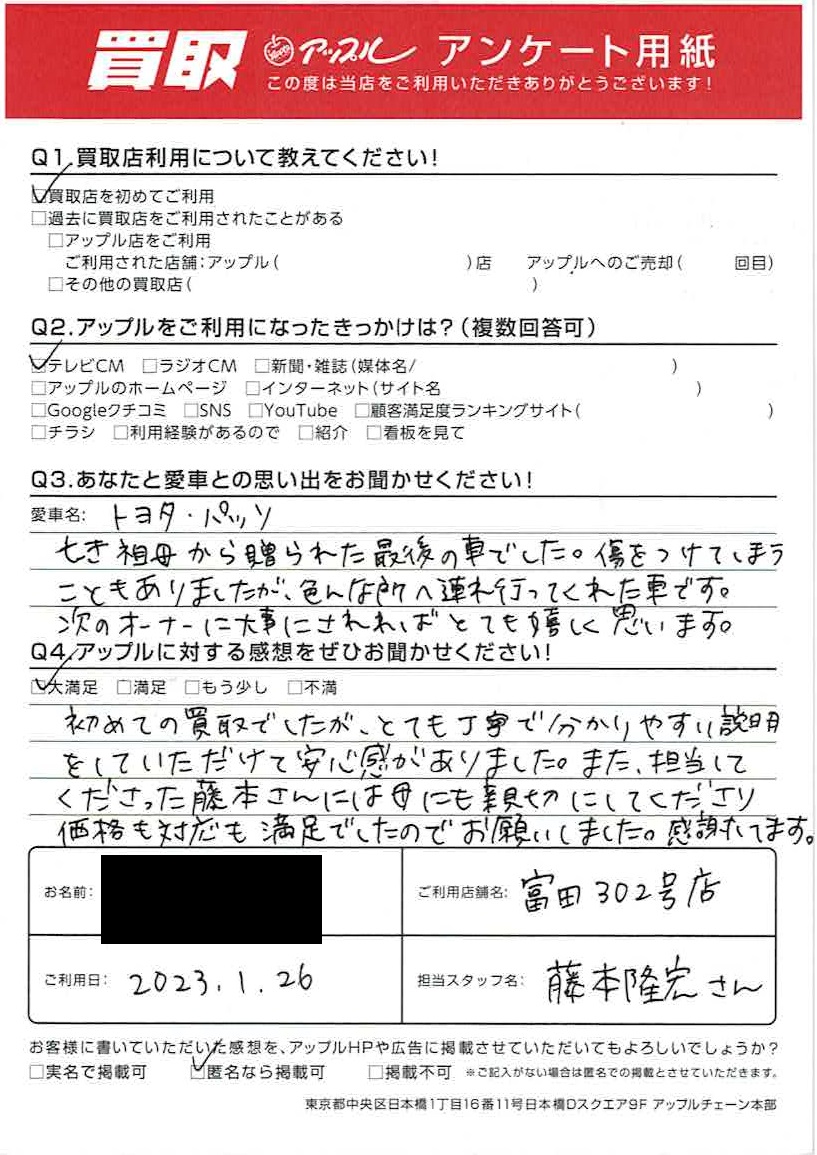 買取 アップル アンケート用紙
この度は当店をご利用いただきありがとうございます!
Q1.買取店利用について教えてください!
☑買取店を初めてご利用
□過去に買取店をご利用されたことがある
□アップル店をご利用
ご利用された店舗:アップル( )店 アップルへのご売却( 回目)
□その他の買取店( )
Q2.アップルをご利用になったきっかけは?(複数回答可)
☑テレビCM □ラジオCM □新聞・雑誌(媒体名/ )
□アップルのホームページ □インターネット(サイト名 )
□Googleクチコミ □SNS □YouTube □顧客満足度ランキングサイト( )
□チラシ □利用経験があるので □紹介 □看板を見て
Q3.あなたと愛車との思い出をお聞かせください!
愛車名: トヨタ・パッソ
亡き祖母から贈られた最後の車でした。傷をつけてしまう
こともありましたが、色んな所へ連れ行ってくれた車です。
次のオーナーに大事にされればとても嬉しく思います。
Q4.アップルに対する感想をぜひお聞かせください!
☑大満足 □満足 □もう少し □不満
初めての買取でしたが、とても丁寧で分かりやすい説明
をしていただけて安心感がありました。また、担当して
くださった藤本さんには母にも親切にしてくださり
価格も対応も満足でしたのでお願いしました。感謝してます。
お名前:
ご利用店舗名: 富田302号店
ご利用日: 2023.1.26
担当スタッフ名: 藤本隆宏さん
お客様に書いていただいた感想を、アップルHPや広告に掲載させていただいてもよろしいでしょうか?
□実名で掲載可 ☑匿名なら掲載可 □掲載不可 ※ご記入がない場合は匿名での掲載とさせていただきます。
東京都中央区日本橋1丁目16番11号日本橋Dスクエア9F アップルチェーン本部